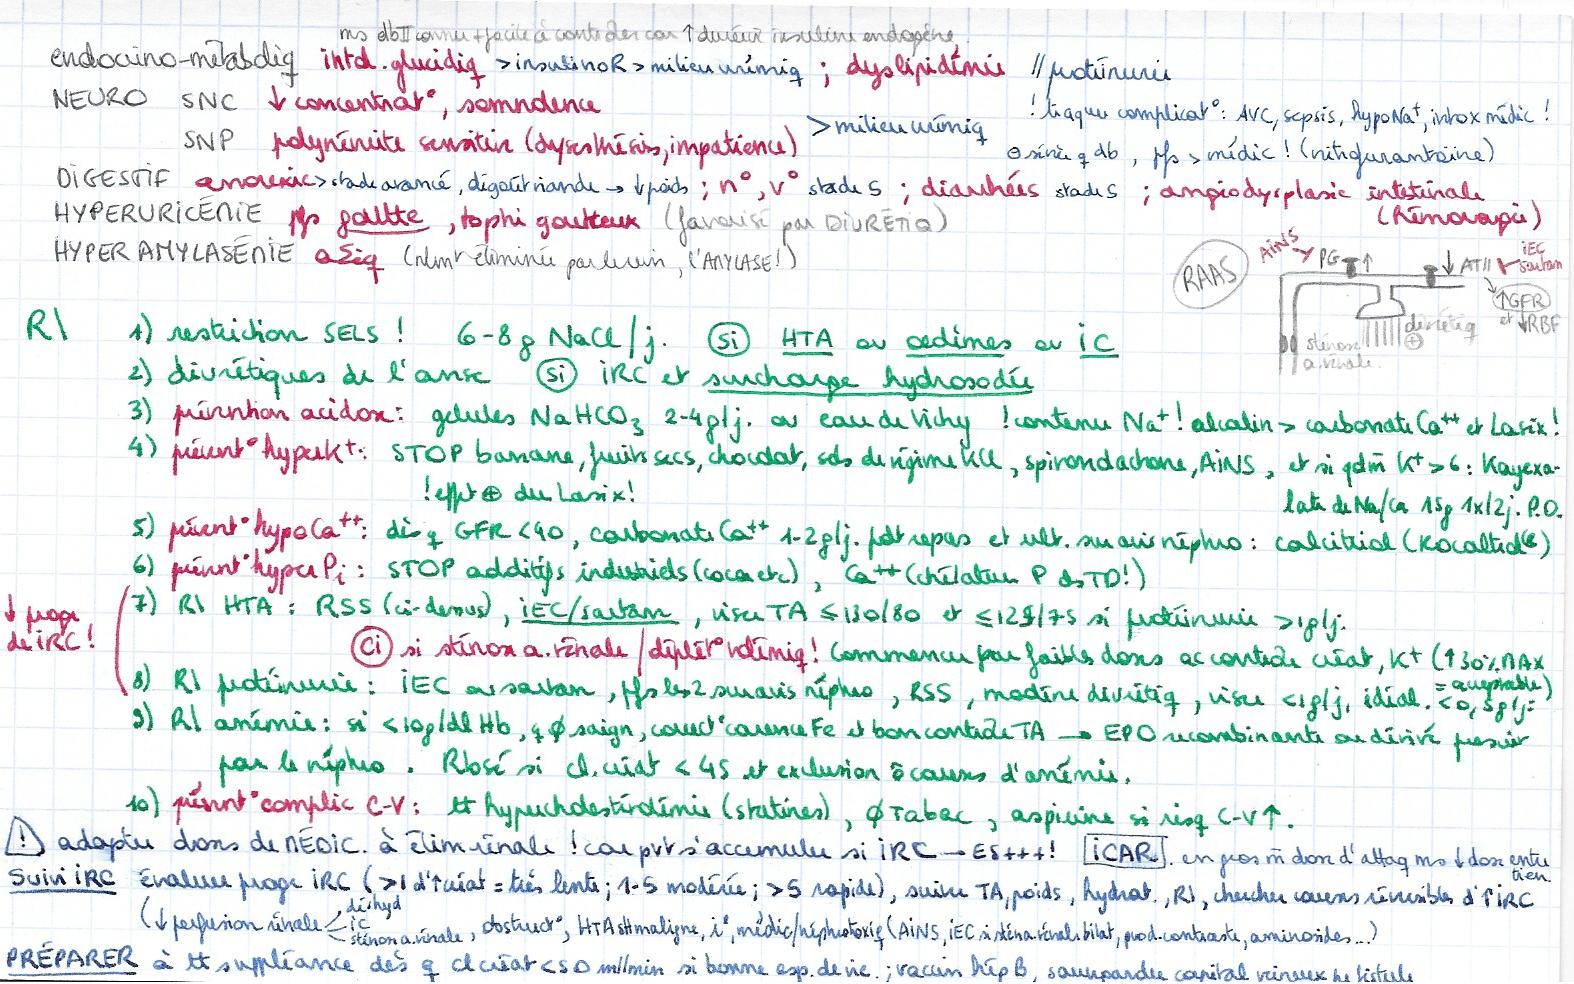 ms db II connu + facile à controler car ↑ durée insuline endogène
endocrino-métaboliq intol. glucidiq > insulinoR > milieu urémiq ; dyslipidémie // protéinurie
NEURO SNC ↓ concentrat°, somnolence
! traquer complicat° : AVC, sepsis, hypoNa+, intox médic !
SNP polynévrite sensitive (dysesthésies, impatience) > milieu urémiq
⊖ séries q db, pfs > médic ! (nitrofurantoïne)
DIGESTIF anorexie > stade avancé, dégoût viande → ↓ poids ; n°, v° stade 5 ; diarrhées stade 5 ; angiodysplasie intestinale
HYPERURICÉMIE pfs goutte, tophi goutteux (favorisé par DIURÉTIQ)
(hémorragie)
HYPERAMYLASÉMIE aΣiq (nlmt éliminée par le rein, l'AMYLASE!)
RAAS AINS PG ↑ ↓ ATII iEC sartan
↑GFR et ↓RBF
diurétiq ⊕
sténose a. rénale
R/ 1) restriction SELS ! 6-8 g NaCl/j. (si) HTA ou œdèmes ou iC
2) diurétiques de l'anse (si) iRC et surcharge hydrosodée
3) prévention acidose : gélules NaHCO3 2-4g/j. ou eau de Vichy ! contenu Na+ ! alcalin > carbonate Ca++ et Lasix !
4) prévent° hyperK+ : STOP banane, fruits secs, chocolat, sels de régime KCl, spironolactone, AiNS, et si qdm K+ > 6 : Kayexa-
! effet ⊕ du Lasix !
late de Na/Ca 15g 1x/2j. P.O.
5) prévent° hypoCa++ : dès q GFR < 40, carbonate Ca++ 1-2g/j. pdt repas et ult. sur avis néphro : calcitriol (Rocaltrol®)
6) prévent° hyperPi : STOP additifs industriels (coca etc), Ca++ (chélateur P ds TD!)
↓ progr de iRC !
7) R/ HTA : RSS (ci-dessus), iEC/sartan, viser TA ≤ 130/80 et ≤ 125/75 si protéinurie > 1g/j.
(Ci) si sténose a. rénale / déplét° volémiq ! Commencer par faibles doses ac controle créat, K+ (↑ 30% MAX = acceptable)
8) R/ protéinurie : iEC ou sartan, pfs les 2 sur avis néphro, RSS, modérée diurétiq, viser < 1g/j, idéal. < 0,5g/j.
9) R/ anémie : si < 10g/dl Hb, q ∅ saign, correct° carence Fe et bon controle TA → EPO recombinante ou dérivé prescrit
par le néphro. Rbsé si cl. créat < 45 et exclusion ô causes d'anémie.
10) prévent° complic C-V : tt hypercholestérolémie (statines), ∅ Tabac, aspirine si risq C-V ↑.
⚠ adapter doses de MÉDIC. à élim rénale ! car pvt s'accumuler si iRC → ES+++ ! [iCAR]. en gros m̂ dose d'attaq ms ↓ dose entretien.
Suivi iRC évaluer progr iRC (>1 d'↑ créat = très lente ; 1-5 modérée ; >5 rapide), suivre TA, poids, hydrat., R/, chercher causes réversibles d'↑ iRC
(↓ perfusion rénale < déshyd iC sténose a. rénale, obstruct°, HTA maligne, i°, médic/néphrotoxiq (AiNS, iEC si sténa. rénale bilat, prod. contraste, aminosides...)
PRÉPARER à tt suppléance dès q cl créat < 50 ml/min si bonne esp. de vie. ; vaccin hép B, sauvegarder capital veineux pr fistule